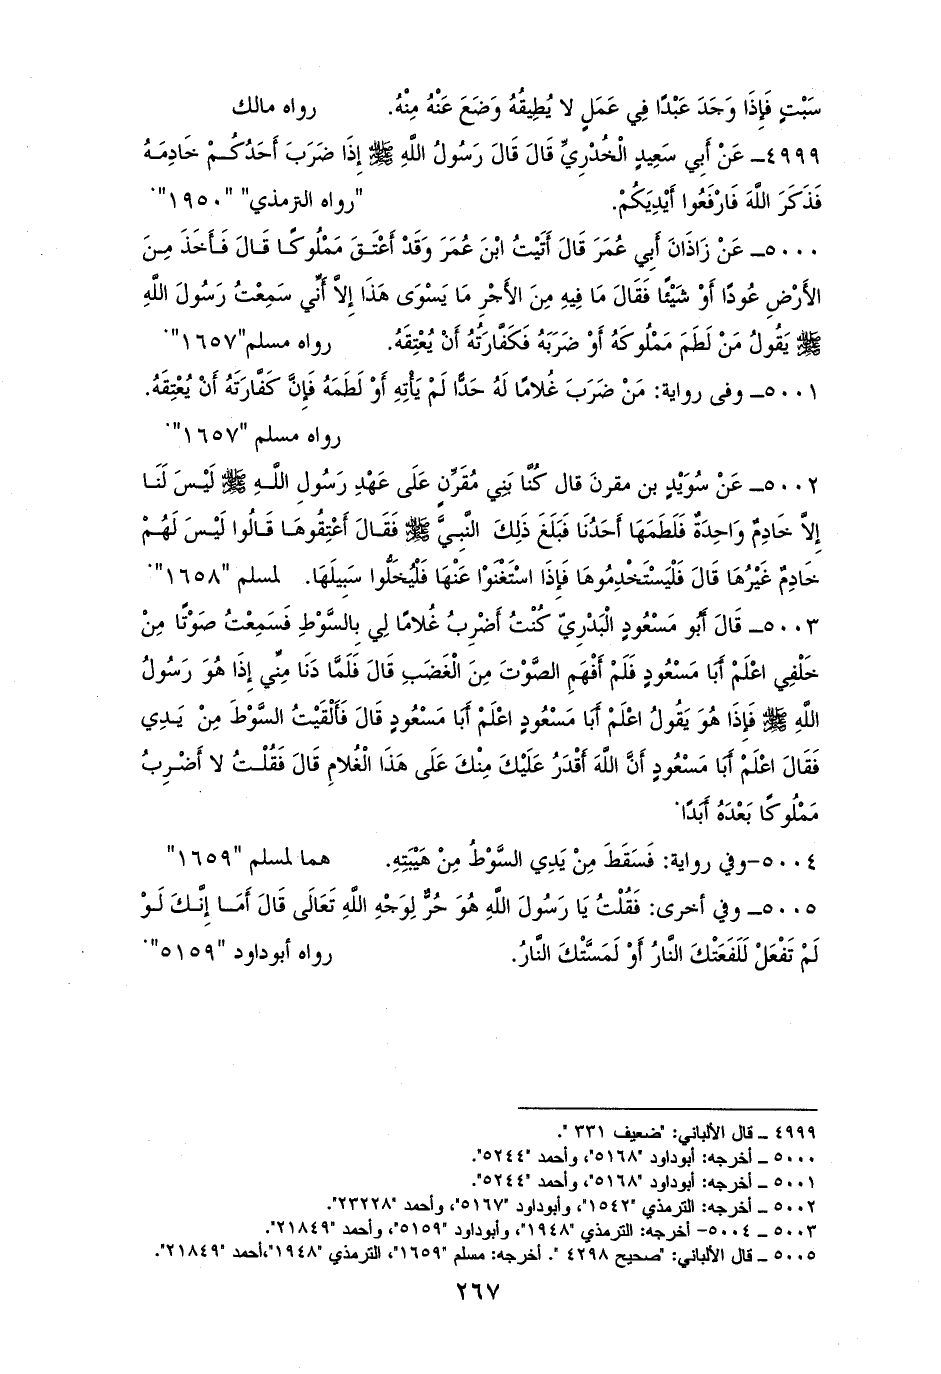 سَبْتٍ فَإِذَا وَجَدَ عَبْدًا فِي عَمَلٍ لا يُطِيقُهُ وَضَعَ عَنْهُ مِنْهُ. رواه مالك
٤٩٩٩ـ عَنْ أَبِي سَعِيدٍ الْخُدْرِيِّ قَالَ قَالَ رَسُولُ اللَّهِ ﷺ إِذَا ضَرَبَ أَحَدُكُمْ خَادِمَهُ
فَذَكَرَ اللَّهَ فَارْفَعُوا أَيْدِيَكُمْ. "رواه الترمذي" "١٩٥٠".
٥٠٠٠ـ عَنْ زَاذَانَ أَبِي عُمَرَ قَالَ أَتَيْتُ ابْنَ عُمَرَ وَقَدْ أَعْتَقَ مَمْلُوكًا قَالَ فَأَخَذَ مِنَ
الأَرْضِ عُودًا أَوْ شَيْئًا فَقَالَ مَا فِيهِ مِنَ الأَجْرِ مَا يَسْوَى هَذَا إِلاَّ أَنِّي سَمِعْتُ رَسُولَ اللَّهِ
ﷺ يَقُولُ مَنْ لَطَمَ مَمْلُوكَهُ أَوْ ضَرَبَهُ فَكَفَّارَتُهُ أَنْ يُعْتِقَهُ. رواه مسلم"١٦٥٧".
٥٠٠١ـ وفى رواية: مَنْ ضَرَبَ غُلامًا لَهُ حَدًّا لَمْ يَأْتِهِ أَوْ لَطَمَهُ فَإِنَّ كَفَّارَتَهُ أَنْ يُعْتِقَهُ.
رواه مسلم "١٦٥٧".
٥٠٠٢ـ عَنْ سُوَيْدٍ بن مقرنَ قال كُنَّا بَنِي مُقَرِّنٍ عَلَى عَهْدِ رَسُولِ اللَّهِ ﷺ لَيْسَ لَنَا
إِلاَّ خَادِمٌ وَاحِدَةٌ فَلَطَمَهَا أَحَدُنَا فَبَلَغَ ذَلِكَ النَّبِيَّ ﷺ فَقَالَ أَعْتِقُوهَا قَالُوا لَيْسَ لَهُمْ
خَادِمٌ غَيْرُهَا قَالَ فَلْيَسْتَخْدِمُوهَا فَإِذَا اسْتَغْنَوْا عَنْهَا فَلْيُخَلُّوا سَبِيلَهَا. لمسلم "١٦٥٨".
٥٠٠٣ـ قَالَ أَبُو مَسْعُودٍ الْبَدْرِيّ كُنْتُ أَضْرِبُ غُلامًا لِي بِالسَّوْطِ فَسَمِعْتُ صَوْتًا مِنْ
خَلْفِي اعْلَمْ أَبَا مَسْعُودٍ فَلَمْ أَفْهَمِ الصَّوْتَ مِنَ الْغَضَبِ قَالَ فَلَمَّا دَنَا مِنِّي إِذَا هُوَ رَسُولُ
اللَّهِ ﷺ فَإِذَا هُوَ يَقُولُ اعْلَمْ أَبَا مَسْعُودٍ اعْلَمْ أَبَا مَسْعُودٍ قَالَ فَأَلْقَيْتُ السَّوْطَ مِنْ يَدِي
فَقَالَ اعْلَمْ أَبَا مَسْعُودٍ أَنَّ اللَّهَ أَقْدَرُ عَلَيْكَ مِنْكَ عَلَى هَذَا الْغُلامِ قَالَ فَقُلْتُ لا أَضْرِبُ
مَمْلُوكًا بَعْدَهُ أَبَدًا.
٥٠٠٤-وفي رواية: فَسَقَطَ مِنْ يَدِي السَّوْطُ مِنْ هَيْبَتِهِ. هما لمسلم "١٦٥٩"
٥٠٠٥ـ وفي أخرى: فَقُلْتُ يَا رَسُولَ اللَّهِ هُوَ حُرٌّ لِوَجْهِ اللَّهِ تَعَالَى قَالَ أَمَا إِنَّكَ لَوْ
لَمْ تَفْعَلْ لَلَفَعَتْكَ النَّارُ أَوْ لَمَسَّتْكَ النَّارُ. رواه أبوداود "٥١٥٩".
٤٩٩٩ ـ قال الألباني: "ضعيف ٣٣١ ".
٥٠٠٠ ـ أخرجه: أبوداود "٥١٦٨"، وأحمد "٥٢٤٤".
٥٠٠١ ـ أخرجه: أبوداود "٥١٦٨"، وأحمد "٥٢٤٤".
٥٠٠٢ ـ أخرجه: الترمذي "١٥٤٢"، وأبوداود "٥١٦٧"، وأحمد "٢٣٢٢٨".
٥٠٠٣ ـ ٥٠٠٤- أخرجه: الترمذي "١٩٤٨"، وأبوداود "٥١٥٩"، وأحمد "٢١٨٤٩".
٥٠٠٥ ـ قال الألباني: "صحيح ٤٢٩٨ ". أخرجه: مسلم "١٦٥٩"، الترمذي "١٩٤٨"،أحمد "٢١٨٤٩".
٢٦٧